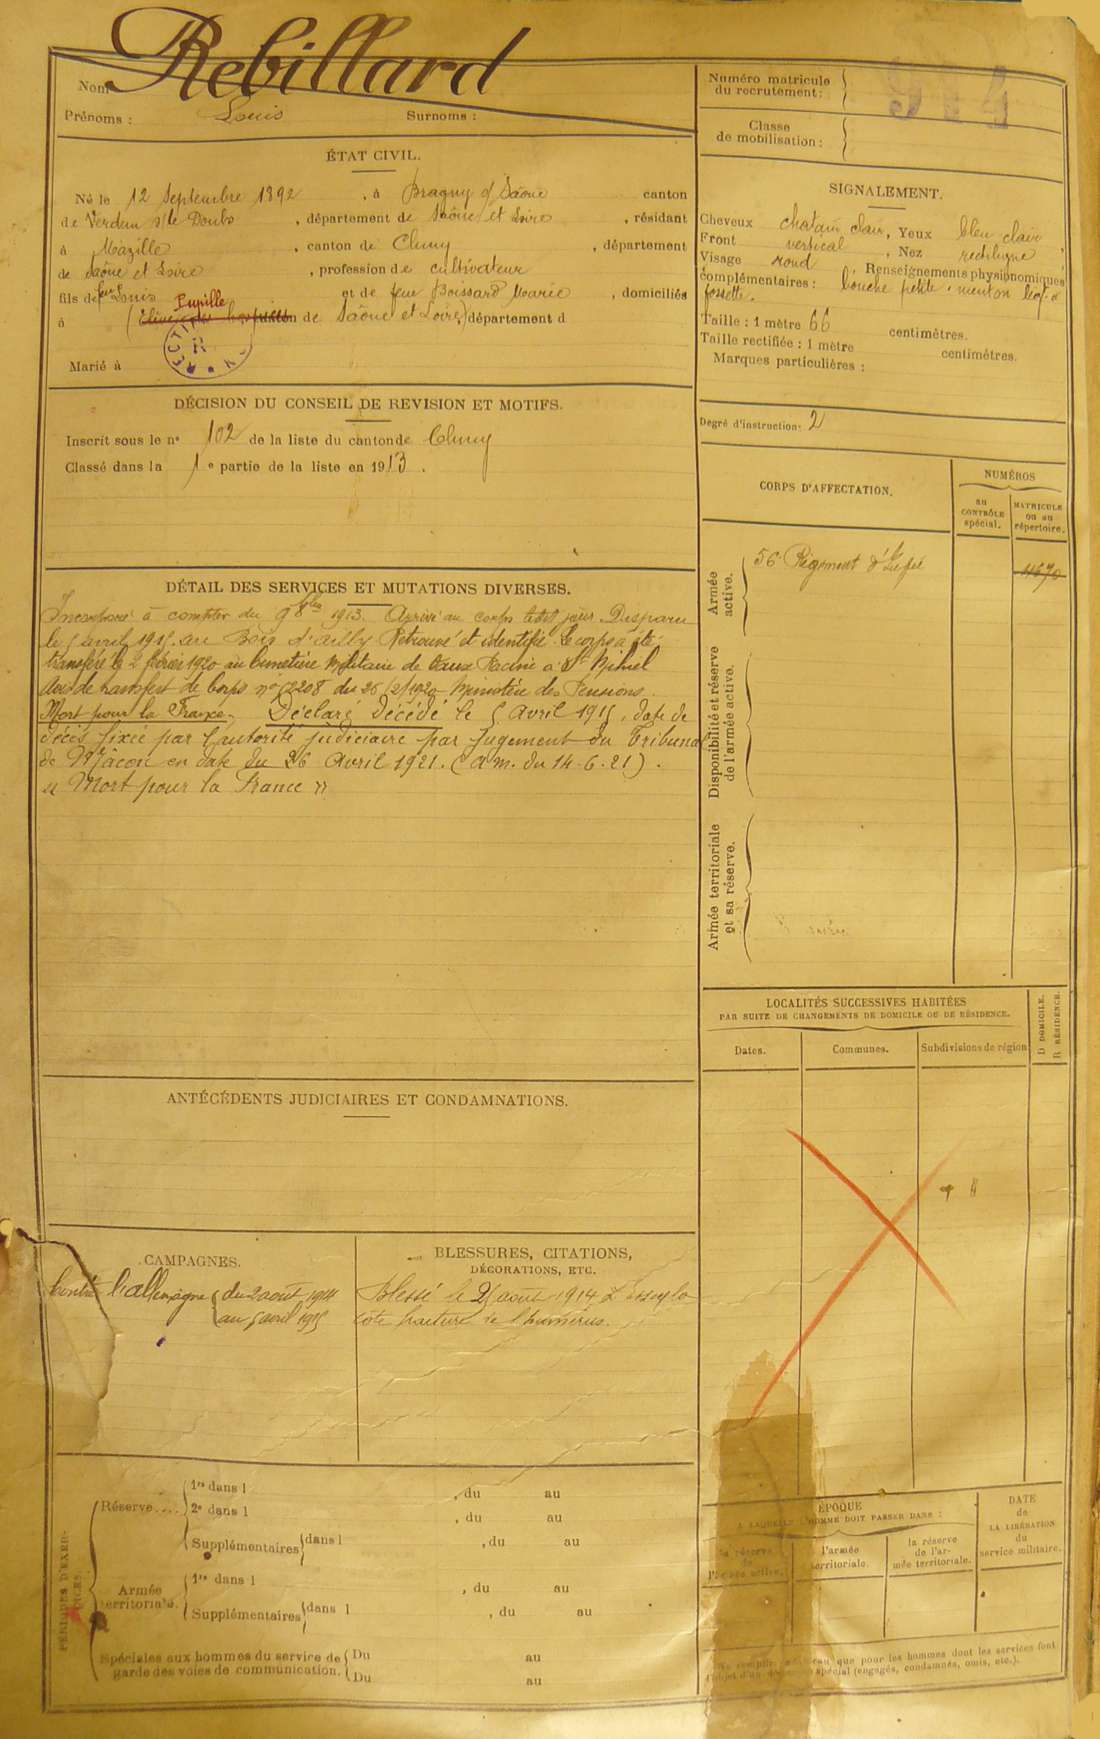 Rebillard
Nom
Prénoms : Louis Surnoms :
Numéro matricule
du recrutement :
914
Classe
de mobilisation :
ÉTAT CIVIL.
Né le 12 Septembre 1892 , à Bragny s/ Saône canton
de Verdun s/ le Doubs , département de Saône et Loire , résidant
à Mazille , canton de Cluny , département
de Saône et Loire , profession de cultivateur
fils de feu Louis et de feu Boissard Marie , domiciliés
Pupille
à (Elève des hospices de Saône et Loire) , département d
Marié à
SIGNALEMENT.
Cheveux chatain clair , Yeux bleu clair ,
Front vertical , Nez rectiligne
Visage rond , Renseignements physionomiques
complémentaires : bouche petite menton à
fossette.
Taille : 1 mètre 66 centimètres.
Taille rectifiée : 1 mètre centimètres.
Marques particulières :
Degré d'instruction : 2
DÉCISION DU CONSEIL DE REVISION ET MOTIFS.
Inscrit sous le n° 102 de la liste du canton de Cluny
Classé dans la 1e partie de la liste en 1913 .
CORPS D'AFFECTATION.
NUMÉROS
au
CONTRÔLE
spécial.
MATRICULE
ou au
répertoire.
Armée
active.
56e Régiment d'Infie
11670
Disponibilité et réserve
de l'armée active.
Armée territoriale
et sa réserve.
DÉTAIL DES SERVICES ET MUTATIONS DIVERSES.
Incorporé à compter du 9 8bre 1913. Arrivé au corps ledit jour. Disparu
le 5 avril 1915 au Bois d'Ailly Retrouvé et identifié. Le corps a été
transféré le 2 février 1920 au Cimetière Militaire de Vaux Racine à St Mihiel
Avis de transfert de corps n° 2208 du 26/2/1920 Ministère des Pensions.
Mort pour la France. Déclaré décédé le 5 Avril 1915, date de
décès fixée par l'autorité judiciaire par Jugement du Tribunal
de Mâcon en date du 26 Avril 1921. (A.m. du 14-6-21).
« Mort pour la France »
LOCALITÉS SUCCESSIVES HABITÉES
PAR SUITE DE CHANGEMENTS DE DOMICILE OU DE RÉSIDENCE.
Dates.
Communes.
Subdivisions de région
D DOMICILE.
R RÉSIDENCE.
ANTÉCÉDENTS JUDICIAIRES ET CONDAMNATIONS.
CAMPAGNES.
Contre l'Allemagne du 2 août 1914
au 5 avril 1915
BLESSURES, CITATIONS,
DÉCORATIONS, ETC.
Blessé le 25 août 1914
côte fracture de l'humérus.
PÉRIODES D'EXERCICES.
Réserve....
1re dans l , du au
2e dans l , du au
Supplémentaires dans l , du au
Armée
territoriale.
1re dans l , du au
Supplémentaires dans l , du au
Spéciales aux hommes du service de
garde des voies de communication.
Du au
Du au
ÉPOQUE
A LAQUELLE L'HOMME DOIT PASSER DANS :
la réserve
de
l'armée active.
l'armée
territoriale.
la réserve
de l'ar-
mée territoriale.
DATE
de
LA LIBÉRATION
du
service militaire.
que pour les hommes dont les services font
l'objet d'un spécial (engagés, condamnés, omis, etc.).